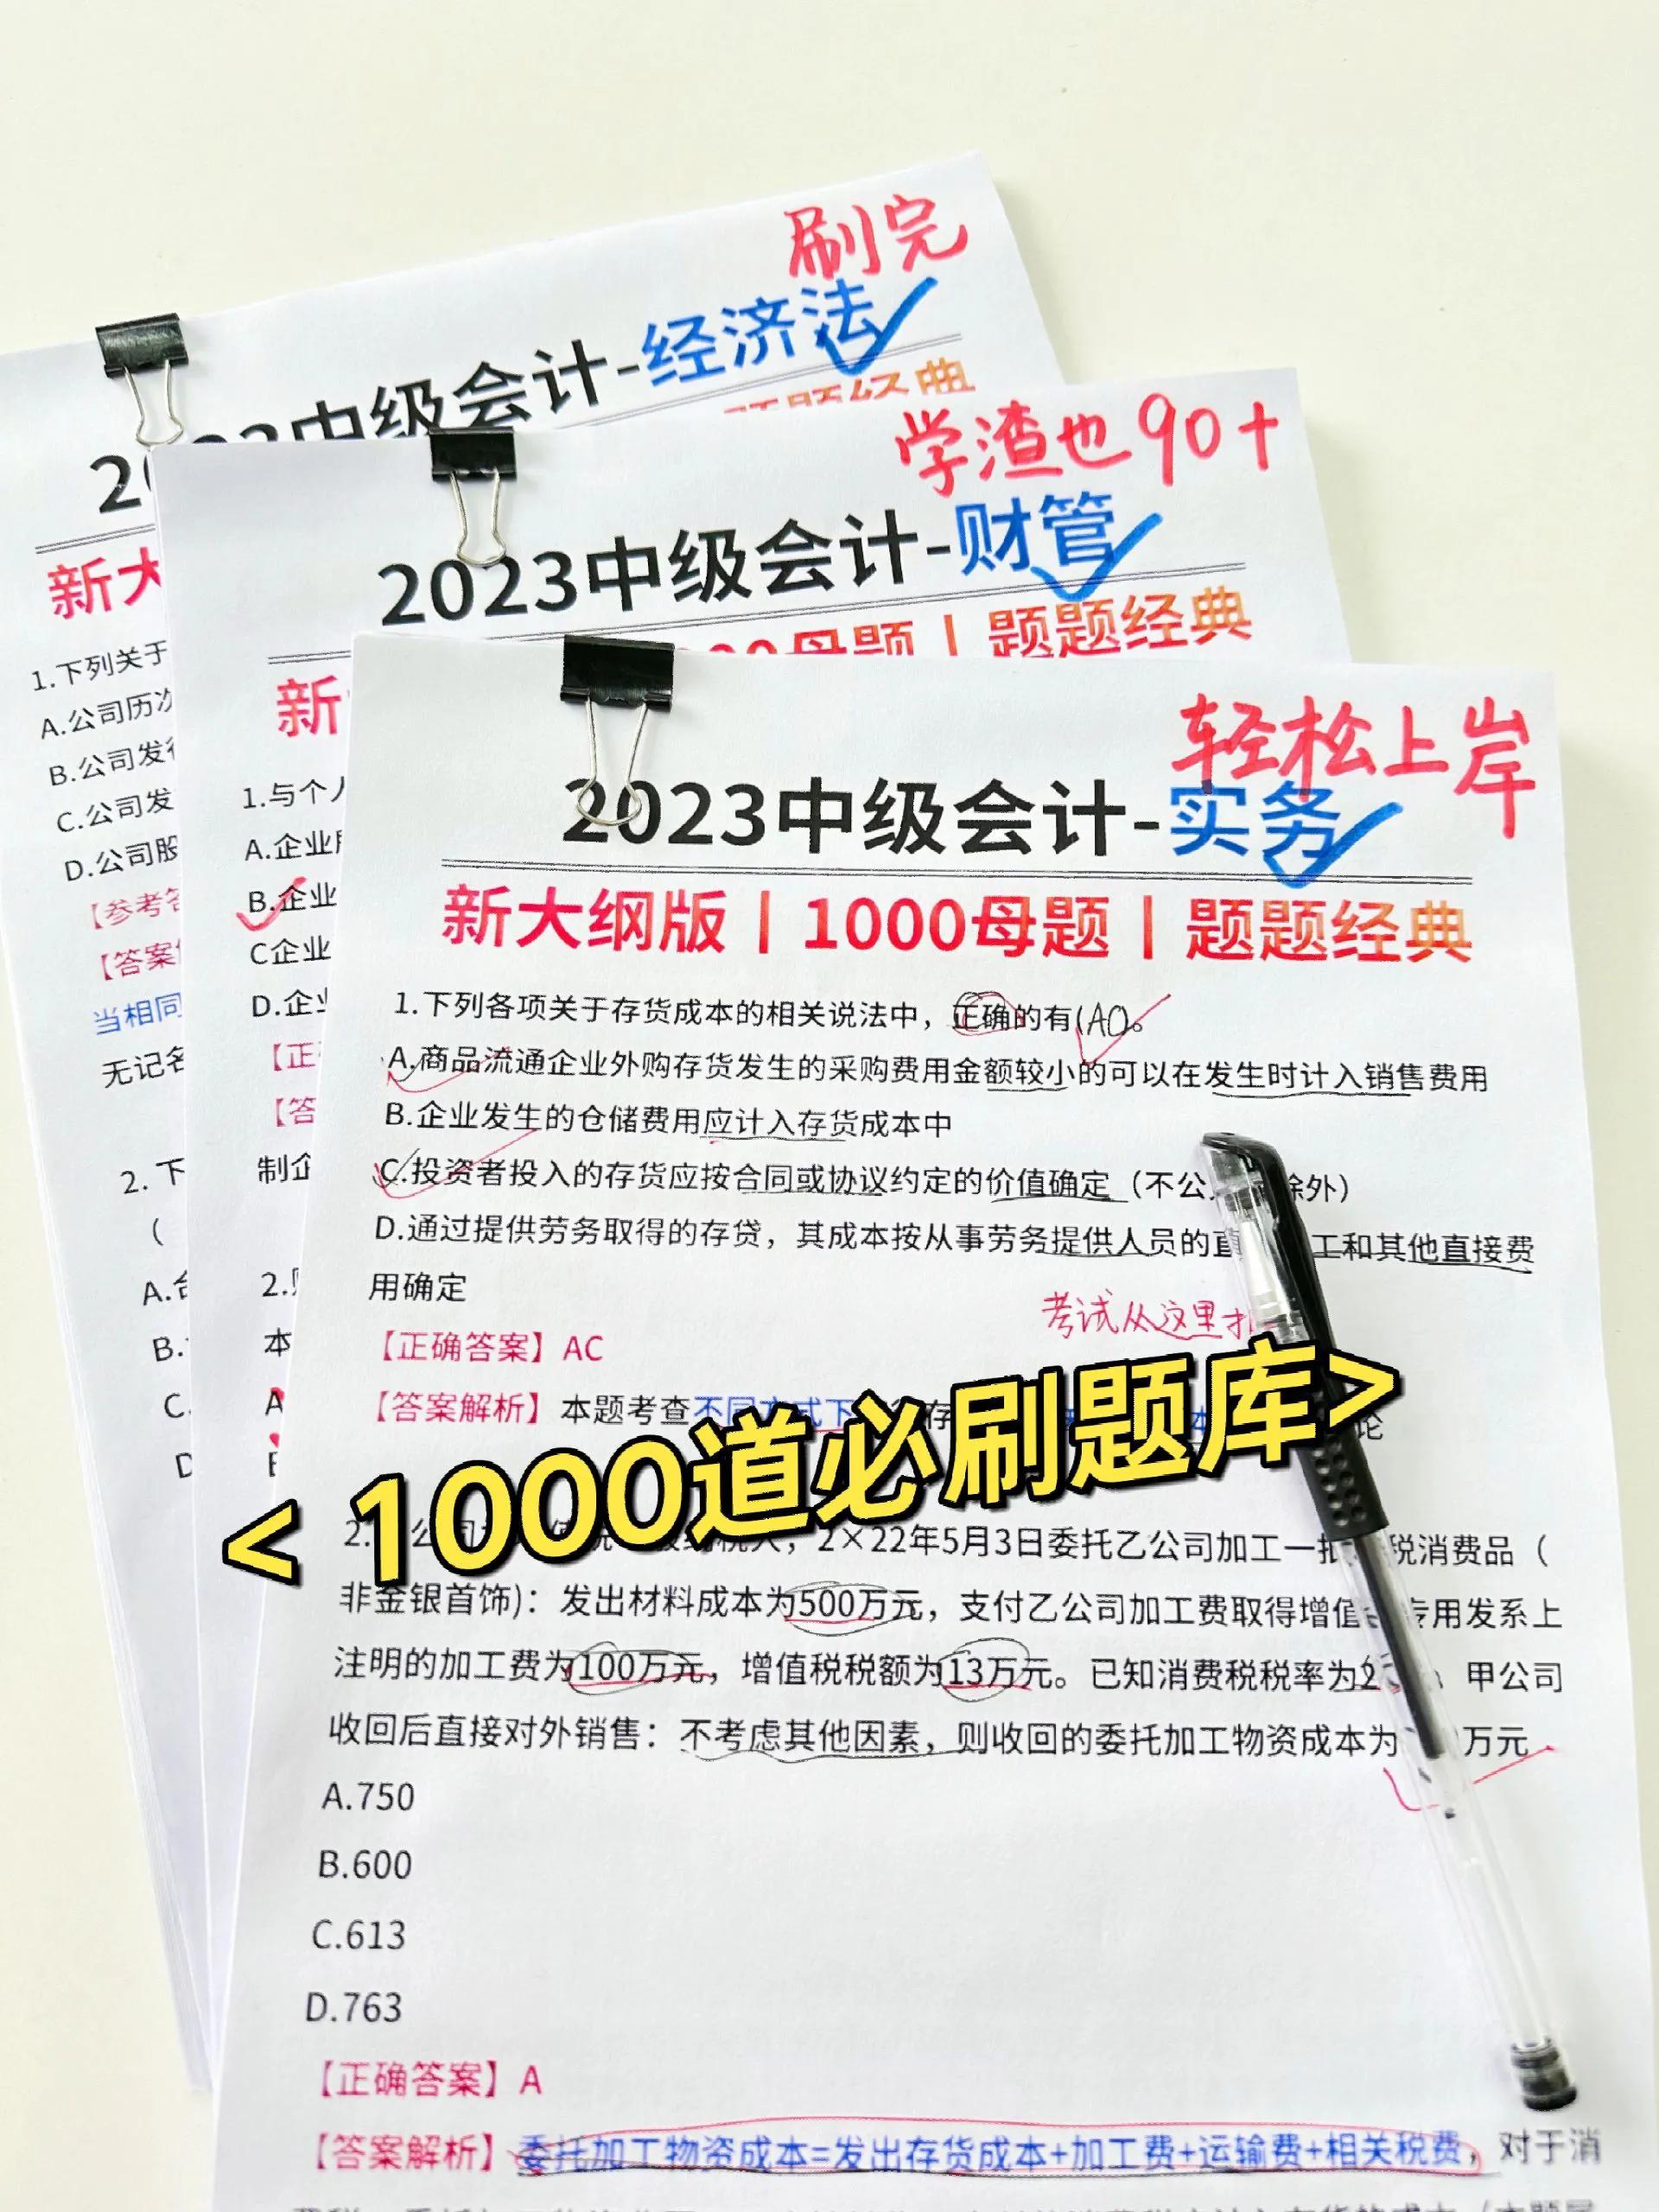 刷完
2023中级会计-经济法
新大
题题经典
1.下列关于
A.公司历次
B.公司发行
C.公司发
D.公司股
【参考答
【答案
当相同
无记名
2. 下
（
A.合
B.
C.
D
学渣也90+
2023中级会计-财管
新
1000母题丨题题经典
1.与个人
A.企业
B.企业
C企业
D.企业
【正
【答
制企
2.
本
A
轻松上岸
2023中级会计-实务
新大纲版丨1000母题丨题题经典
1.下列各项关于存货成本的相关说法中，正确的有(AC)。
A.商品流通企业外购存货发生的采购费用金额较小的可以在发生时计入销售费用
B.企业发生的仓储费用应计入存货成本中
C.投资者投入的存货应按合同或协议约定的价值确定（不公 除外）
D.通过提供劳务取得的存贷，其成本按从事劳务提供人员的直 工和其他直接费
用确定
考试从这里
【正确答案】AC
【答案解析】本题考查不同方式下 存 本 论
<1000道必刷题库>
2. 公司 ，2×22年5月3日委托乙公司加工一批 税消费品（
非金银首饰)：发出材料成本为500万元，支付乙公司加工费取得增值 专用发系上
注明的加工费为100万元，增值税税额为13万元。已知消费税税率为2 甲公司
收回后直接对外销售：不考虑其他因素，则收回的委托加工物资成本为 万元
A.750
B.600
C.613
D.763
【正确答案】A
【答案解析】委托加工物资成本=发出存货成本+加工费+运输费+相关税费，对于消